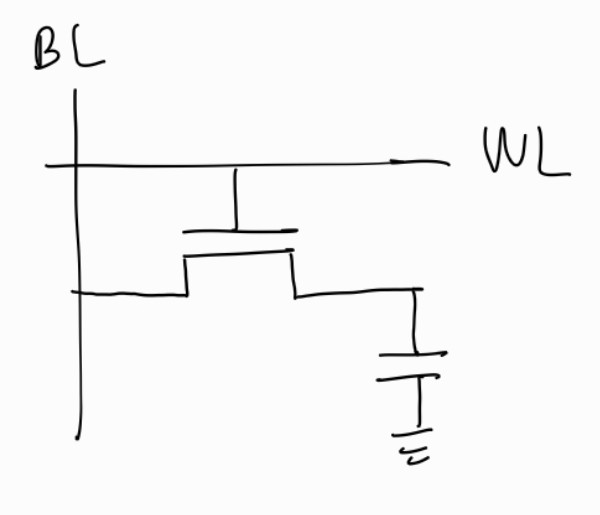 BL
WL